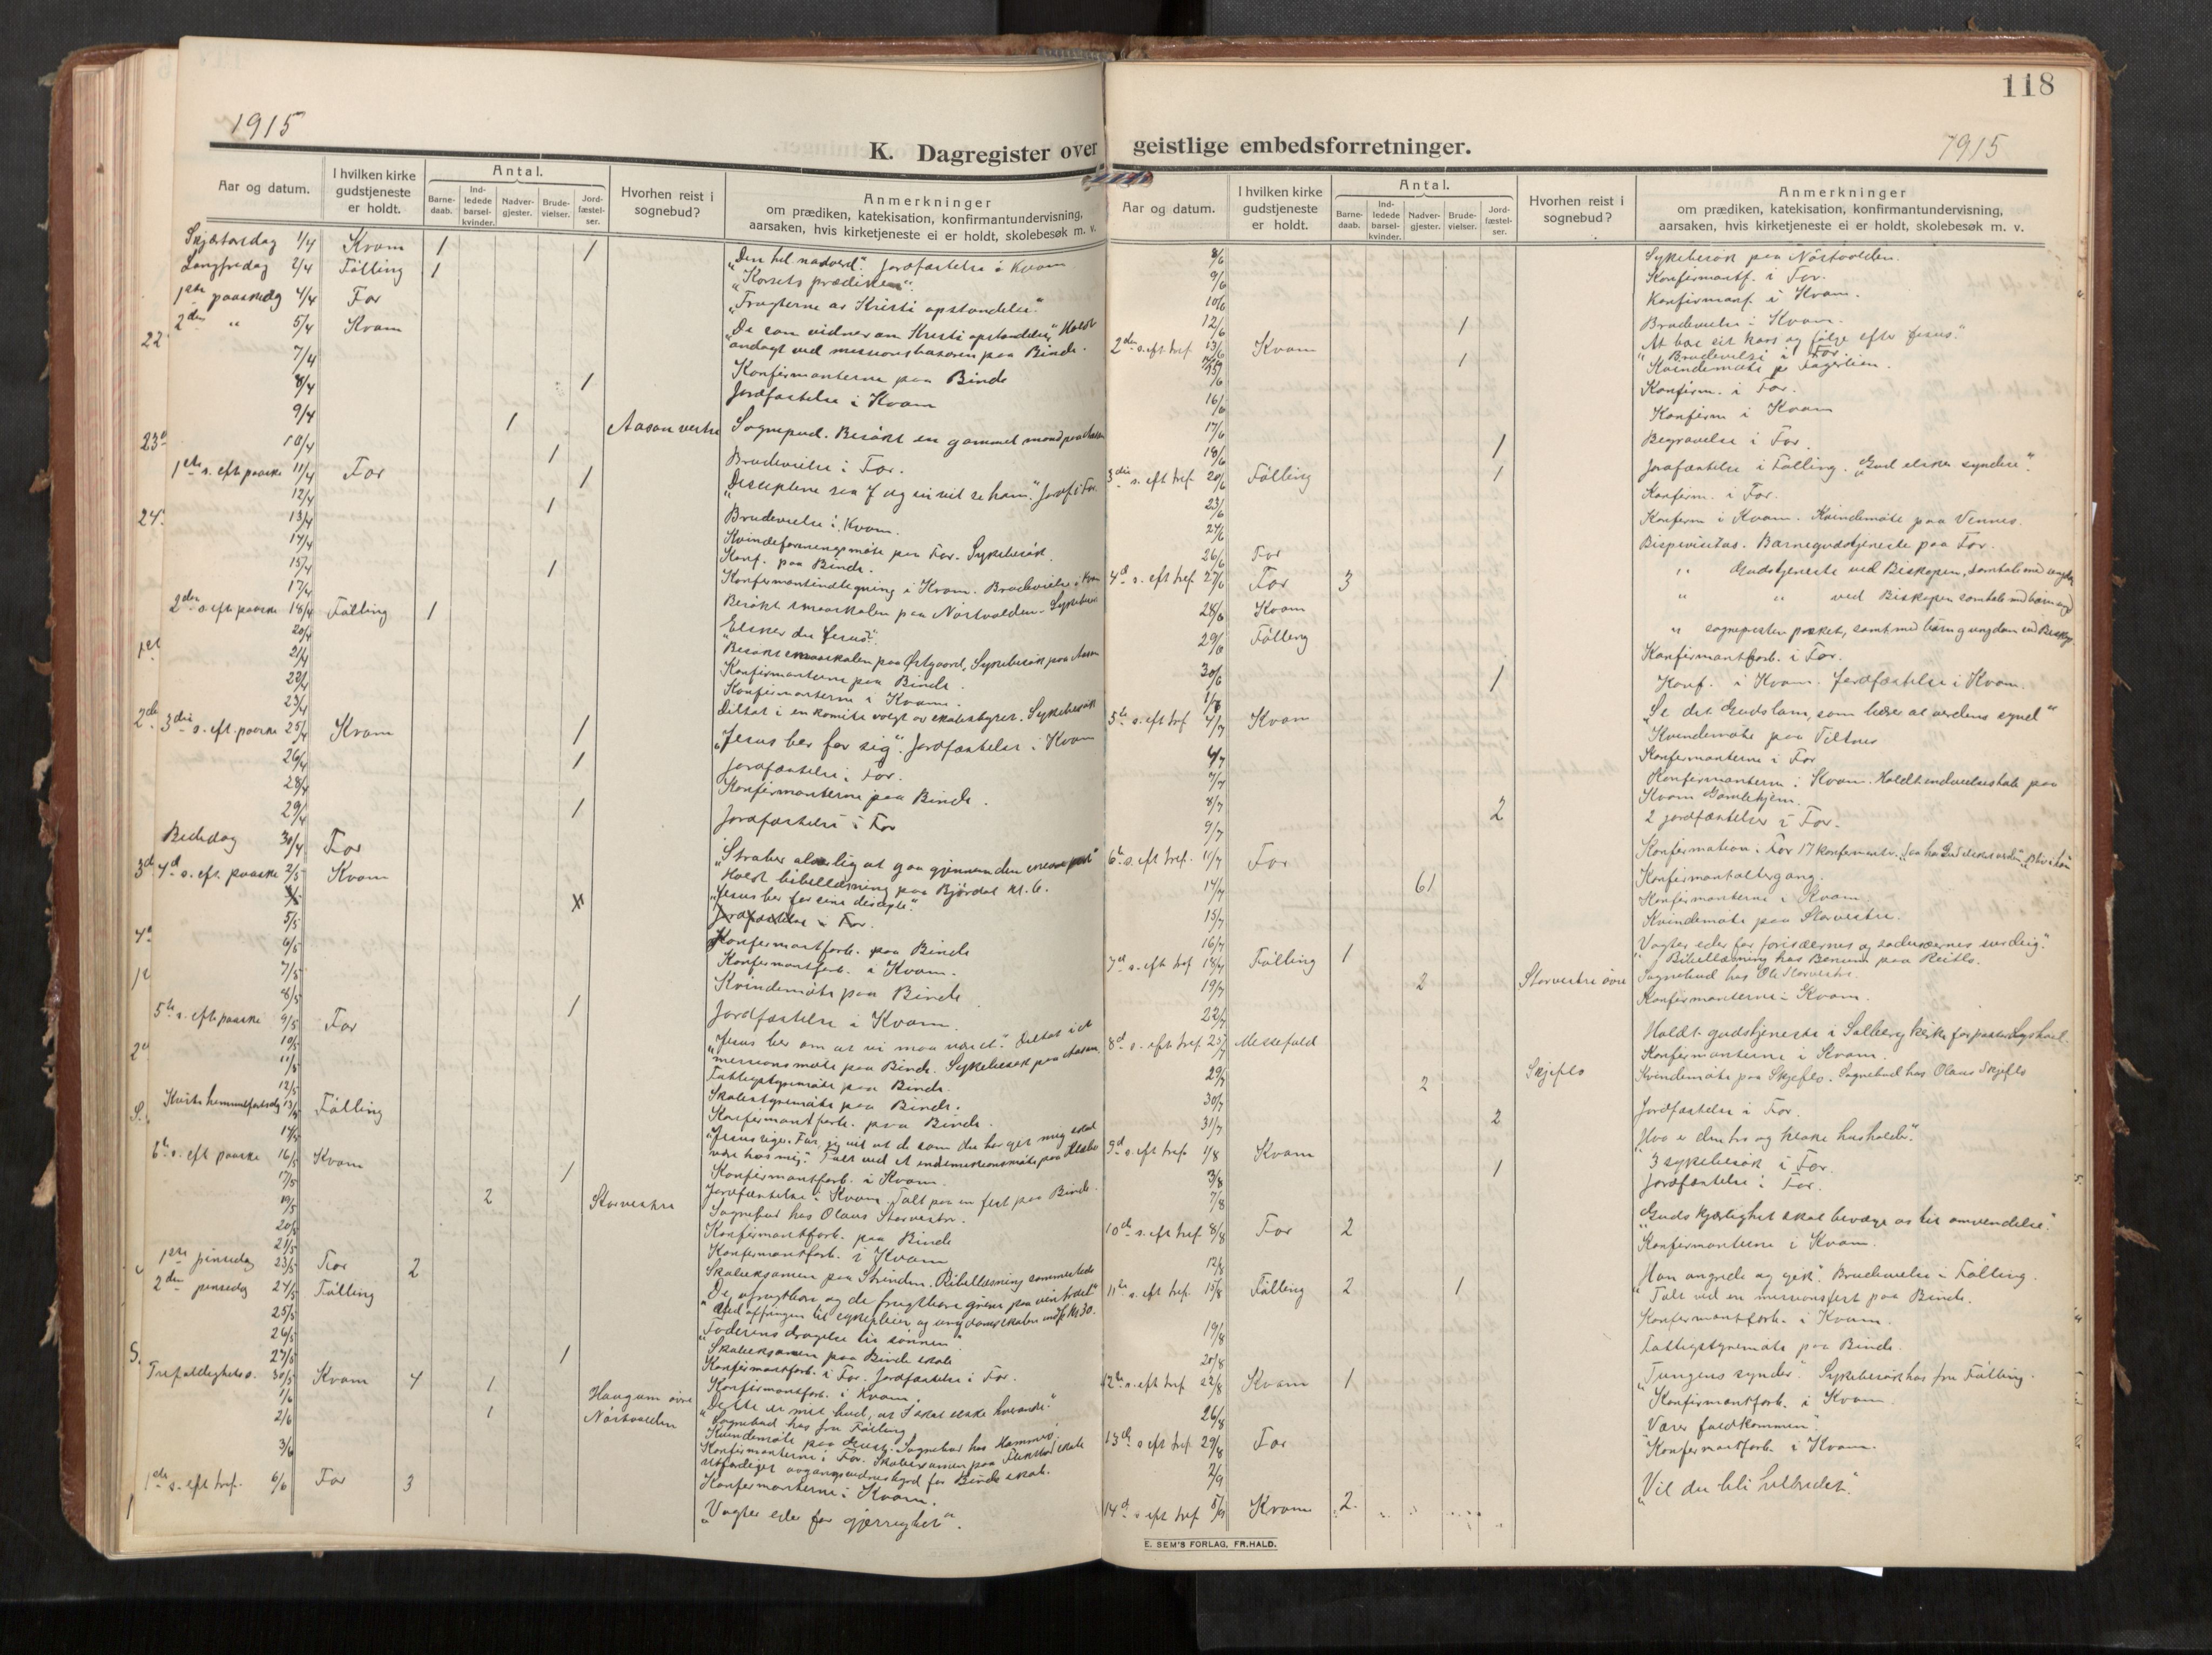 1915
K. Dagregister over
Aar og datum.
I hvilken kirke gudstjeneste er holdt.
Antal.
Barne-daab.
Ind-ledede barsel-kvinder.
Nadver-gjester.
Brude-vielser.
Jord-fæstel-ser.
Hvorhen reist i sognebud?
Anmerkninger
om prædiken, katekisation, konfirmantundervisning,
aarsaken, hvis kirketjeneste ei er holdt, skolebesøk m. v.
Skjærtorsdag 1/4 Kvam 1 1 "Den hel. nadverd". Jordfæstelse i Kvam
Langfredag 2/4 Følling 1 "Korsets prædiken".
1ste paaskedag 4/4 For "Frugterne av Kristi opstandelse."
2den " 5/4 Kvam "De som vidner om Kristi opstandelse" Holdt
andagt ved missionsbasaren paa Binde.
7/4 Konfirmanterne paa Binde
8/4 1 Jordfæstelse i Kvam
9/4 1 Aasan vestre Sognebud. Besøkt en gammel mand paa Aasan
10/4 1 Brudevielse i For.
1ste s. eft. paaske 11/4 For 1 "Disciplene saa J og vi vil se ham." Jordf. i For
12/4 1 Brudevielse i Kvam.
13/4 Kvindeforeningsmøte paa For. Sykebesøk.
14/4 Konf. paa Binde.
15/4 1 Konfirmantindtegning i Kvam. Brudevielse i Kvam
17/4 Besøkt smaaskolen paa Nørstvolden. Sykebesøk
2den s. eft. paaske 18/4 Følling 1 "Elsker du Jesus?"
20/4 Besøkt smaaskolen paa Østgaard, Sykebesøk paa Aasan
21/4 Konfirmanterne paa Binde.
22/4 Konfirmanterne i Kvam.
23/4 Deltat i en komite valgt av skolestyret. Sykebesøk
3die s. eft. paaske 25/4 Kvam 1 "Jesus ber for sig". Jordfæstelse i Kvam
26/4 1 Jordfæstelse i For.
28/4 Konfirmanterne paa Binde.
29/4 1 Jordfæstelse i For
Bededag 30/4 For "Stræber alvorlig at gaa gjennem den snevre port"
Holdt bibellæsning paa Bjørdal kl. 6.
4d s. eft. paaske 2/5 Kvam "Jesus ber for sine disciple."
Jordfæstelse i For.
5/5 Konfirmantforb. paa Binde
6/5 Konfirmantforb. i Kvam.
7/5 Kvindemøte paa Binde
8/5 1 Jordfæstelse i Kvam.
5te s. eft paaske 9/5 For "Jesus ber om at vi maa være et." Deltat i et
missionsmøte paa Binde. Sykebesøk paa Aasan.
10/5 Fattigstyremøte paa Binde.
11/5 Skolestyremøte paa Binde.
12/5 Konfirmantforb. paa Binde.
Kristi himmelfartsdag 13/5 Følling "Jesus siger: Far, jeg vil at de som du har get mig skal
være hos mig." Talt ved et indremissionsmøte paa
14/5 Konfirmantforb. i Kvam.
6te s. eft paaske 16/5 Kvam
17/5 1 Jordfæstelse i Kvam. Talt paa en fest paa Binde.
19/5 2 Storvestre Sognebud hos Olaus Storvestre.
20/5 Konfirmantforb. paa Binde
21/5 Konfirmantforb. i Kvam
1ste pinsedag 23/5 For 2
2den pinsedag 24/5 Følling
Skoleeksamen paa Strinden. Bibellæsning sammesteds
"De ufrugtbare og de frugtbare grene paa vintræet"
"Faderens dragelse til sønnen"
25/5 Skoleeksamen paa Binde skole
26/5 Konfirmantforb. i For. Jordfæstelse i For.
27/5 1 Konfirmantforb. i Kvam.
Trefoldighetss. 30/5 Kvam 4 1 Haugum øvre "Dette er mit bud, at I skal elske hverandre."
1/6 1 Nørstvolden Sognebud hos fru Følling
2/6 Konfirmanterne i For.
3/6 Konfirmanterne i Kvam.
1ste s. eft tref. 6/6 For 3 "Vogter eder for gjerrighet".
118
geistlige embedsforretninger.
1915
Aar og datum.
I hvilken kirke gudstjeneste er holdt.
Antal.
Barne-daab.
Ind-ledede barsel-kvinder.
Nadver-gjester.
Brude-vielser.
Jord-fæstel-ser.
Hvorhen reist i sognebud?
Anmerkninger
om prædiken, katekisation, konfirmantundervisning,
aarsaken, hvis kirketjeneste ei er holdt, skolebesøk m. v.
8/6 Sykebesøk paa Nørstvolden.
9/6 Konfirmantf. i For.
10/6 Konfirmantf. i Kvam.
12/6 1 Brudevielse i Kvam.
2den s. eft tref 13/6 Kvam "At bære sit kors og følge efter Jesus."
1 Brudevielse i For.
15/6 Kvindemøte p. Fagerlien.
16/6 Konfirm. i For.
17/6 Konfirm i Kvam
18/6 1 Begravelse i For.
3die s. eft tref 20/6 Følling 1 Jordfæstelse i Følling. "Gud elsker syndere".
23/6 Konfirm. i For.
24/6 Konfirm i Kvam. Kvindemøte paa Vennes.
26/6 For Bispevisitas. Barnegudstjeneste paa For.
4d s. eft tref 27/6 For 3 " Gudstjeneste ved Biskopen, samtale med ungdom
28/6 Kvam " " ved Biskopen samtale med børn og
29/6 Følling " sognepresten præket, samt. med børn og ungdom ved Biskop
30/6 Konfirmantforb. i For.
1/7 1 Konf. i Kvam. Jordfæstelse i Kvam.
5te s. eft tref 4/7 Kvam "Se det Guds lam, som bærer al verdens synd"
6/7 Kvindemøte paa Tiltnes
7/7 Konfirmanterne i For
8/7 Konfirmanterne i Kvam. Holdt indvielsestale paa
Kvam Gamlehjem.
9/7 2 2 jordfæstelser i For.
6te s. eft tref. 11/7 For Konfirmation i For 17 konfirmanter.
14/7 61 Konfirmantaltergang.
15/7 Konfirmanterne i Kvam
16/7 Kvindemøte paa Storvestre.
7d s. eft tref 18/7 Følling 1 "Vogter eder for farisæernes og sadusæernes surdeig."
Bibellæsning hos Benum paa Reitlo.
19/7 2 Storvestre øvre Sognebud hos Ole Storvestre.
22/7 Konfirmanterne i Kvam.
8d s. eft tref 25/7 Messefald Holdt gudstjeneste i Salberg kirke for pastor
Konfirmanterne i Kvam.
29/7 2 Skjeflo Kvindemøte paa Skjeflo. Sognebud hos Olaus Skjeflo
30/7
31/7 2 Jordfæstelse i For.
9d s. eft tref 1/8 Kvam "Hvo er den tro og kloke husholder".
3/8 1 3 sykebesøk i For.
7/8 Jordfæstelse i For.
10de s. eft tref 8/8 For 2 "Guds kjærlighet skal bevæge os til omvendelse."
12/8 Konfirmanterne i Kvam.
11te s. eft tref. 15/8 Følling 2 1 "Han angrede og gik". Brudevielse i Følling.
Talt ved en missionsfest paa Binde.
19/8 Konfirmantforb. i Kvam.
20/8 Fattigstyremøte paa Binde.
12te s. eft tref 22/8 Kvam 1 "Tungens synder". Sykebesøk hos fru Følling.
26/8 Konfirmantforb. i Kvam
13de s eft tref. 29/8 For "Værer fuldkommen".
2/9 Konfirmantforb. i Kvam.
14d s eft tref 5/9 Kvam 2 "Vil du bli helbredet".
E. SEM'S FORLAG, FR.HALD.